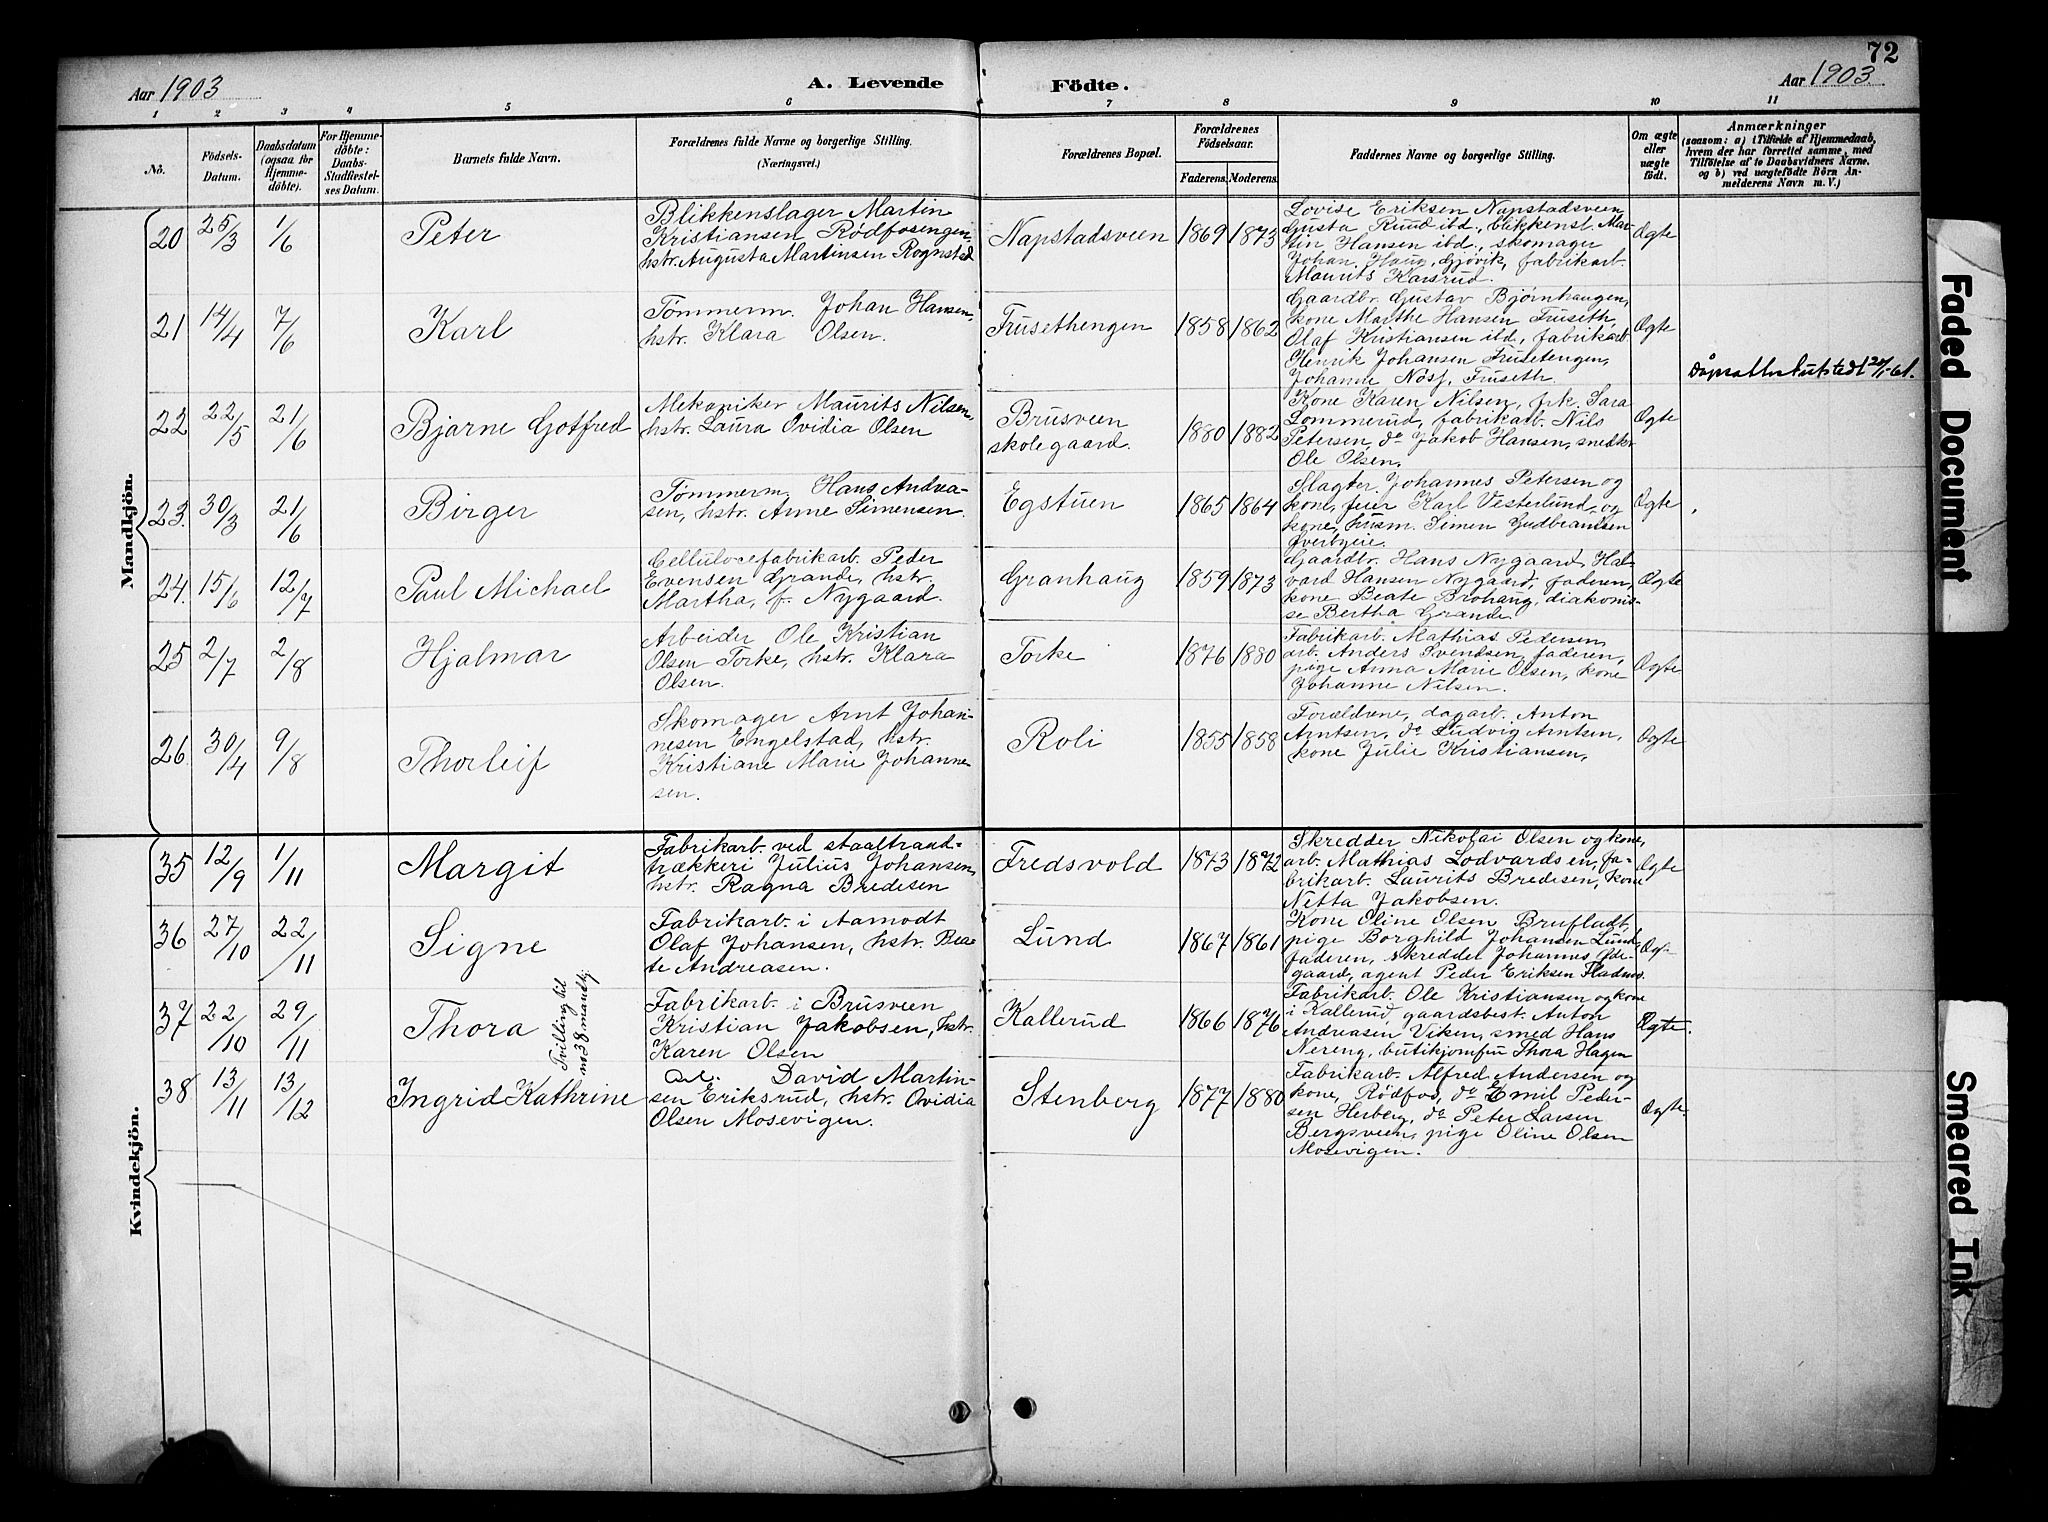 72
Aar 1903
A. Levende
Födte.
Aar 1903
1 2 3 4 5 6 7 8 9 10 11
No.
Födsels-
Datum.
Daabsdatum
(ogsaa for
Hjemme-
döbte).
For Hjemme-
döbte:
Daabs-
Stadfæstel-
ses Datum.
Barnets fulde Navn.
Forældrenes fulde Navne og borgerlige Stilling.
(Næringsvei.)
Forældrenes Bopæl.
Forældrenes
Födselsaar.
Faderens. Moderens.
Faddernes Navne og borgerlige Stilling.
Om ægte
eller
uægte
født.
Anmærkninger
(saasom: a) i Tilfælde af Hjemmedaab,
hvem der har forrettet samme, med
Tilföielse af to Daabsvidners Navne,
og b) ved uægtefödte Börn An-
melderens Navn m. V.)
Mandkjön.
20 25/3 1/6
Peter
Blikkenslager Martin
Kristiansen Rødfosengen,
hstr. Augusta Martinsen Rognstad
Napstadsveen 1869 1873
Lovise Eriksen Napstadsveen
Gusta Ruud ibd., blikkensl. Mar-
tin Hansen ibd., skomager
Johan Haug, Gjøvik, fabrikarb.
Maurits Karsrud.
Ægte
21 14/4 7/6
Karl
Tømmerm. Johan Hansen,
hstr. Klara Olsen.
Trusethengen 1858 1862
Gaardbr. Gustav Bjørnhaugen,
kone Marthe Hansen Truseth,
Olaf Kristiansen ibd., fabrikarb.
Henrik Johansen Trusetengen,
Johanne Nøsj, Truseth.
Ægte
22 22/5 21/6
Bjarne Gotfred
Mekaniker Maurits Nilsen,
hstr. Laura Ovidia Olsen
Brusveen
skolegaard. 1880 1882
Kone Karen Nilsen, frk. Sara
Lommerud, fabrikarb. Nils
Petersen, do Jakob Hansen, snedkr
Ole Olsen.
Ægte
23. 30/3 21/6
Birger
Tømmerm. Hans Andrea-
sen, hstr. Anne Simensen.
Egstuen 1865 1864
Slagter Johannes Petersen og
kone, feier Karl Vesterlund og
kone, husm. Simen Gudbrandsen
Øverbyeie.
Ægte
24. 15/6 12/7
Paul Michael
Cellulosefabrikarb. Peder
Evensen Grande, hstr.
Martha, f. Nygaard.
Granhaug 1859 1873
Gaardbr. Hans Nygaard, Hal-
vard Hansen Nygaard, faderen,
kone Beate Brohaug, diakonis-
se Bertha Grande
Ægte
25 2/7 2/8
Hjalmar
Arbeider Ole Kristian
Olsen Torke, hstr. Klara
Olsen.
Torke 1876 1880
Fabrikarb. Mathias Pedersen,
arb. Anders Svendsen, faderen,
pige Anna Marie Olsen, kone
Johanne Nilsen.
Ægte
26 30/4 9/8
Thorleif
Skomager Arnt Johan-
nesen Engelstad, hstr.
Kristiane Marie Johanne
sen.
Roli 1855 1858
Forældrene, dagarb. Anton
Arntsen, do Ludvig Arntsen,
kone Julie Kristiansen,
Ægte
Kvindekjön.
35 12/9 1/11
Margit
Fabrikarb. ved staaltraad-
trækkeri Julius Johansen,
hstr. Ragna Bredesen
Fredsvold 1873 1872
Skredder Nikolai Olsen og kone,
arb. Mathias Lodvardsen, fa-
brikarb. Laurits Bredesen, kone
Netta Jakobsen.
Ægte
36 27/10 22/11
Signe
Fabrikarb. i Aamodt
Olaf Johansen, hstr. Bea-
te Andreasen.
Lund 1867 1861
Kone Oline Olsen Brufladt,
pige Borghild Johansen Lund,
faderen, skredder Johannes Øde-
gaard, agent Peder Eriksen Fladmo.
Æg-
37 22/10 29/11
Thora
Tvilling til
no 38 mandkj.
Fabrikarb. i Brusveen
Kristian Jakobsen, hstr.
Karen Olsen
Kallerud 1866 1876
Fabrikarb. Ole Kristiansen og kone
i Kallerud, gaardsbest. Anton
Andreasen Viken, smed Hans
Nereng, butikjomfru Thora Hagen
Ægte.
38 13/11 13/12
Ingrid Kathrine
David Martin-
sen Eriksrud, hstr. Ovidia
Olsen Mosevigen.
Stenberg 1877 1880
Fabrikarb. Alfred Andersen og
kone, Rødfos, do Emil Peder-
sen Herberg, do Peter Larsen
Bergsveen, pige Oline Olsen
Mosevigen.
Ægte.
Faded Document
Smeared Ink